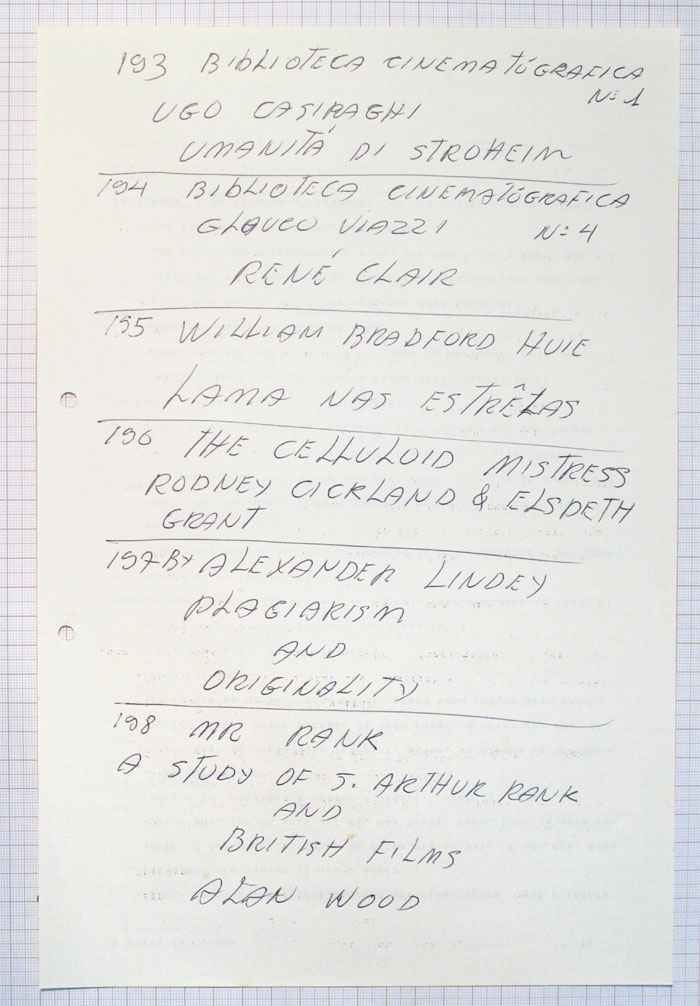 193 BIBLIOTECA CINEMATÚGRAFICA
Nº 1
UGO CASIRAGHI
UMANITÁ DI STROHEIM
194 BIBLIOTECA CINEMATÚGRAFICA
GLAUCO VIAZZI Nº 4
RENÉ CLAIR
195 WILLIAM BRADFORD HUIE
LAMA NAS ESTRÊLAS
196 THE CELLULOID MISTRESS
RODNEY CICKLAND & ELSPETH
GRANT
197 BY ALEXANDER LINDEY
PLAGIARISM
AND
ORIGINALITY
198 MR RANK
A STUDY OF J. ARTHUR RANK
AND
BRITISH FILMS
ALAN WOOD